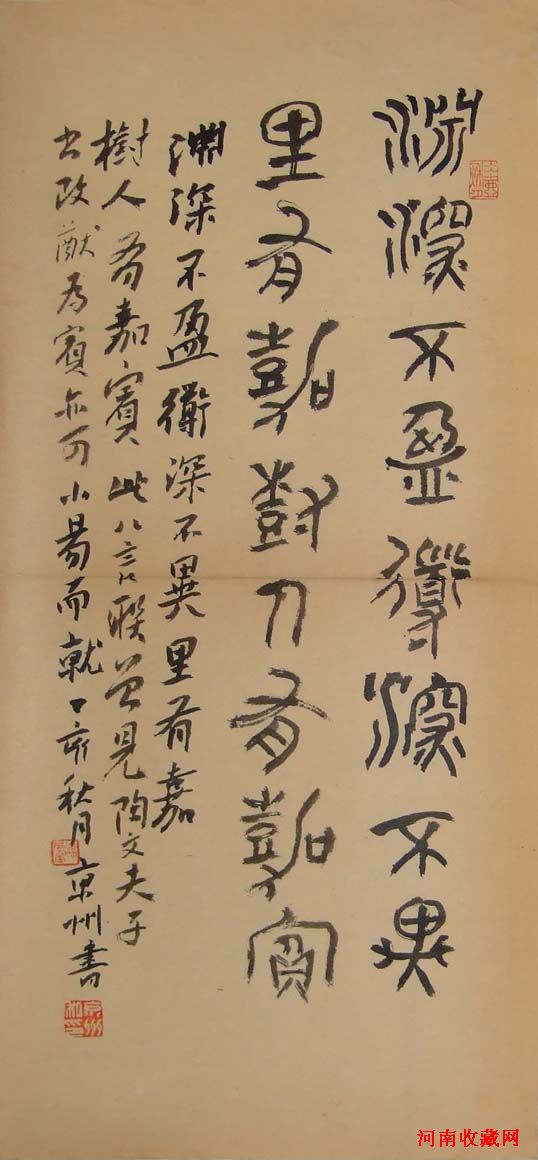 淵深不盈衜深不異
里有嘉樹人有嘉賓
淵深不盈衜深不異里有嘉
樹人有嘉賓此八言联曾見陶文夫子
书改猷为賓亦可小易而就丁亥秋月京州書
河南收藏网